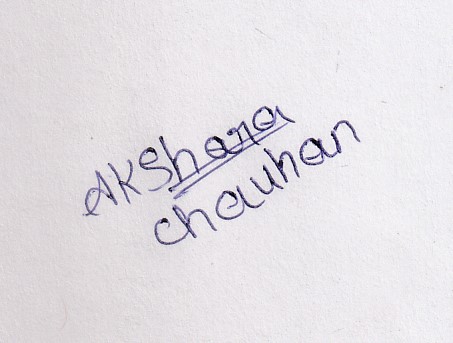 AKShara
chauhan